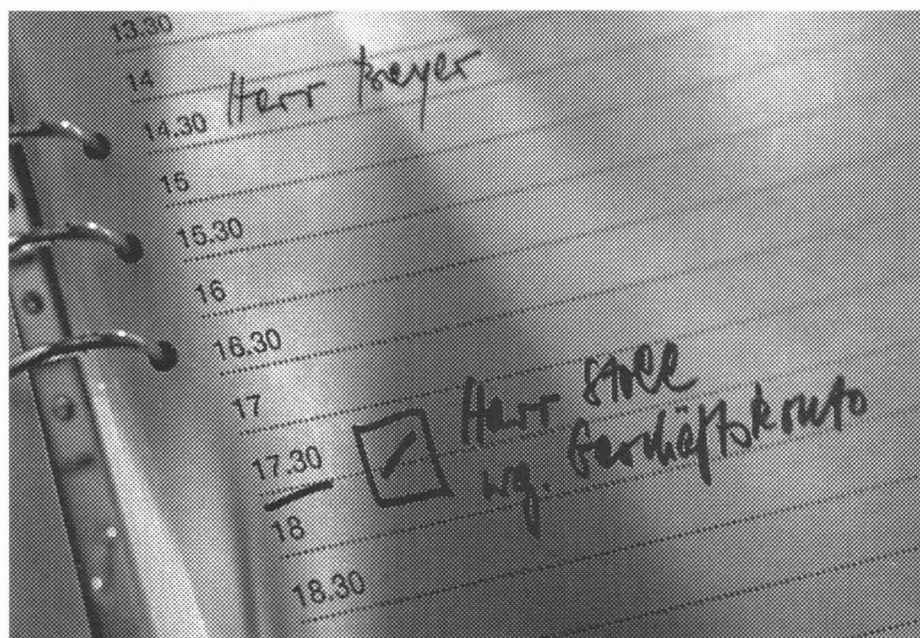 13.30
14
14.30 Herr Breyer
15
15.30
16
16.30
17
17.30 Herr Stoll
wg. Geschäftskonto
18
18.30